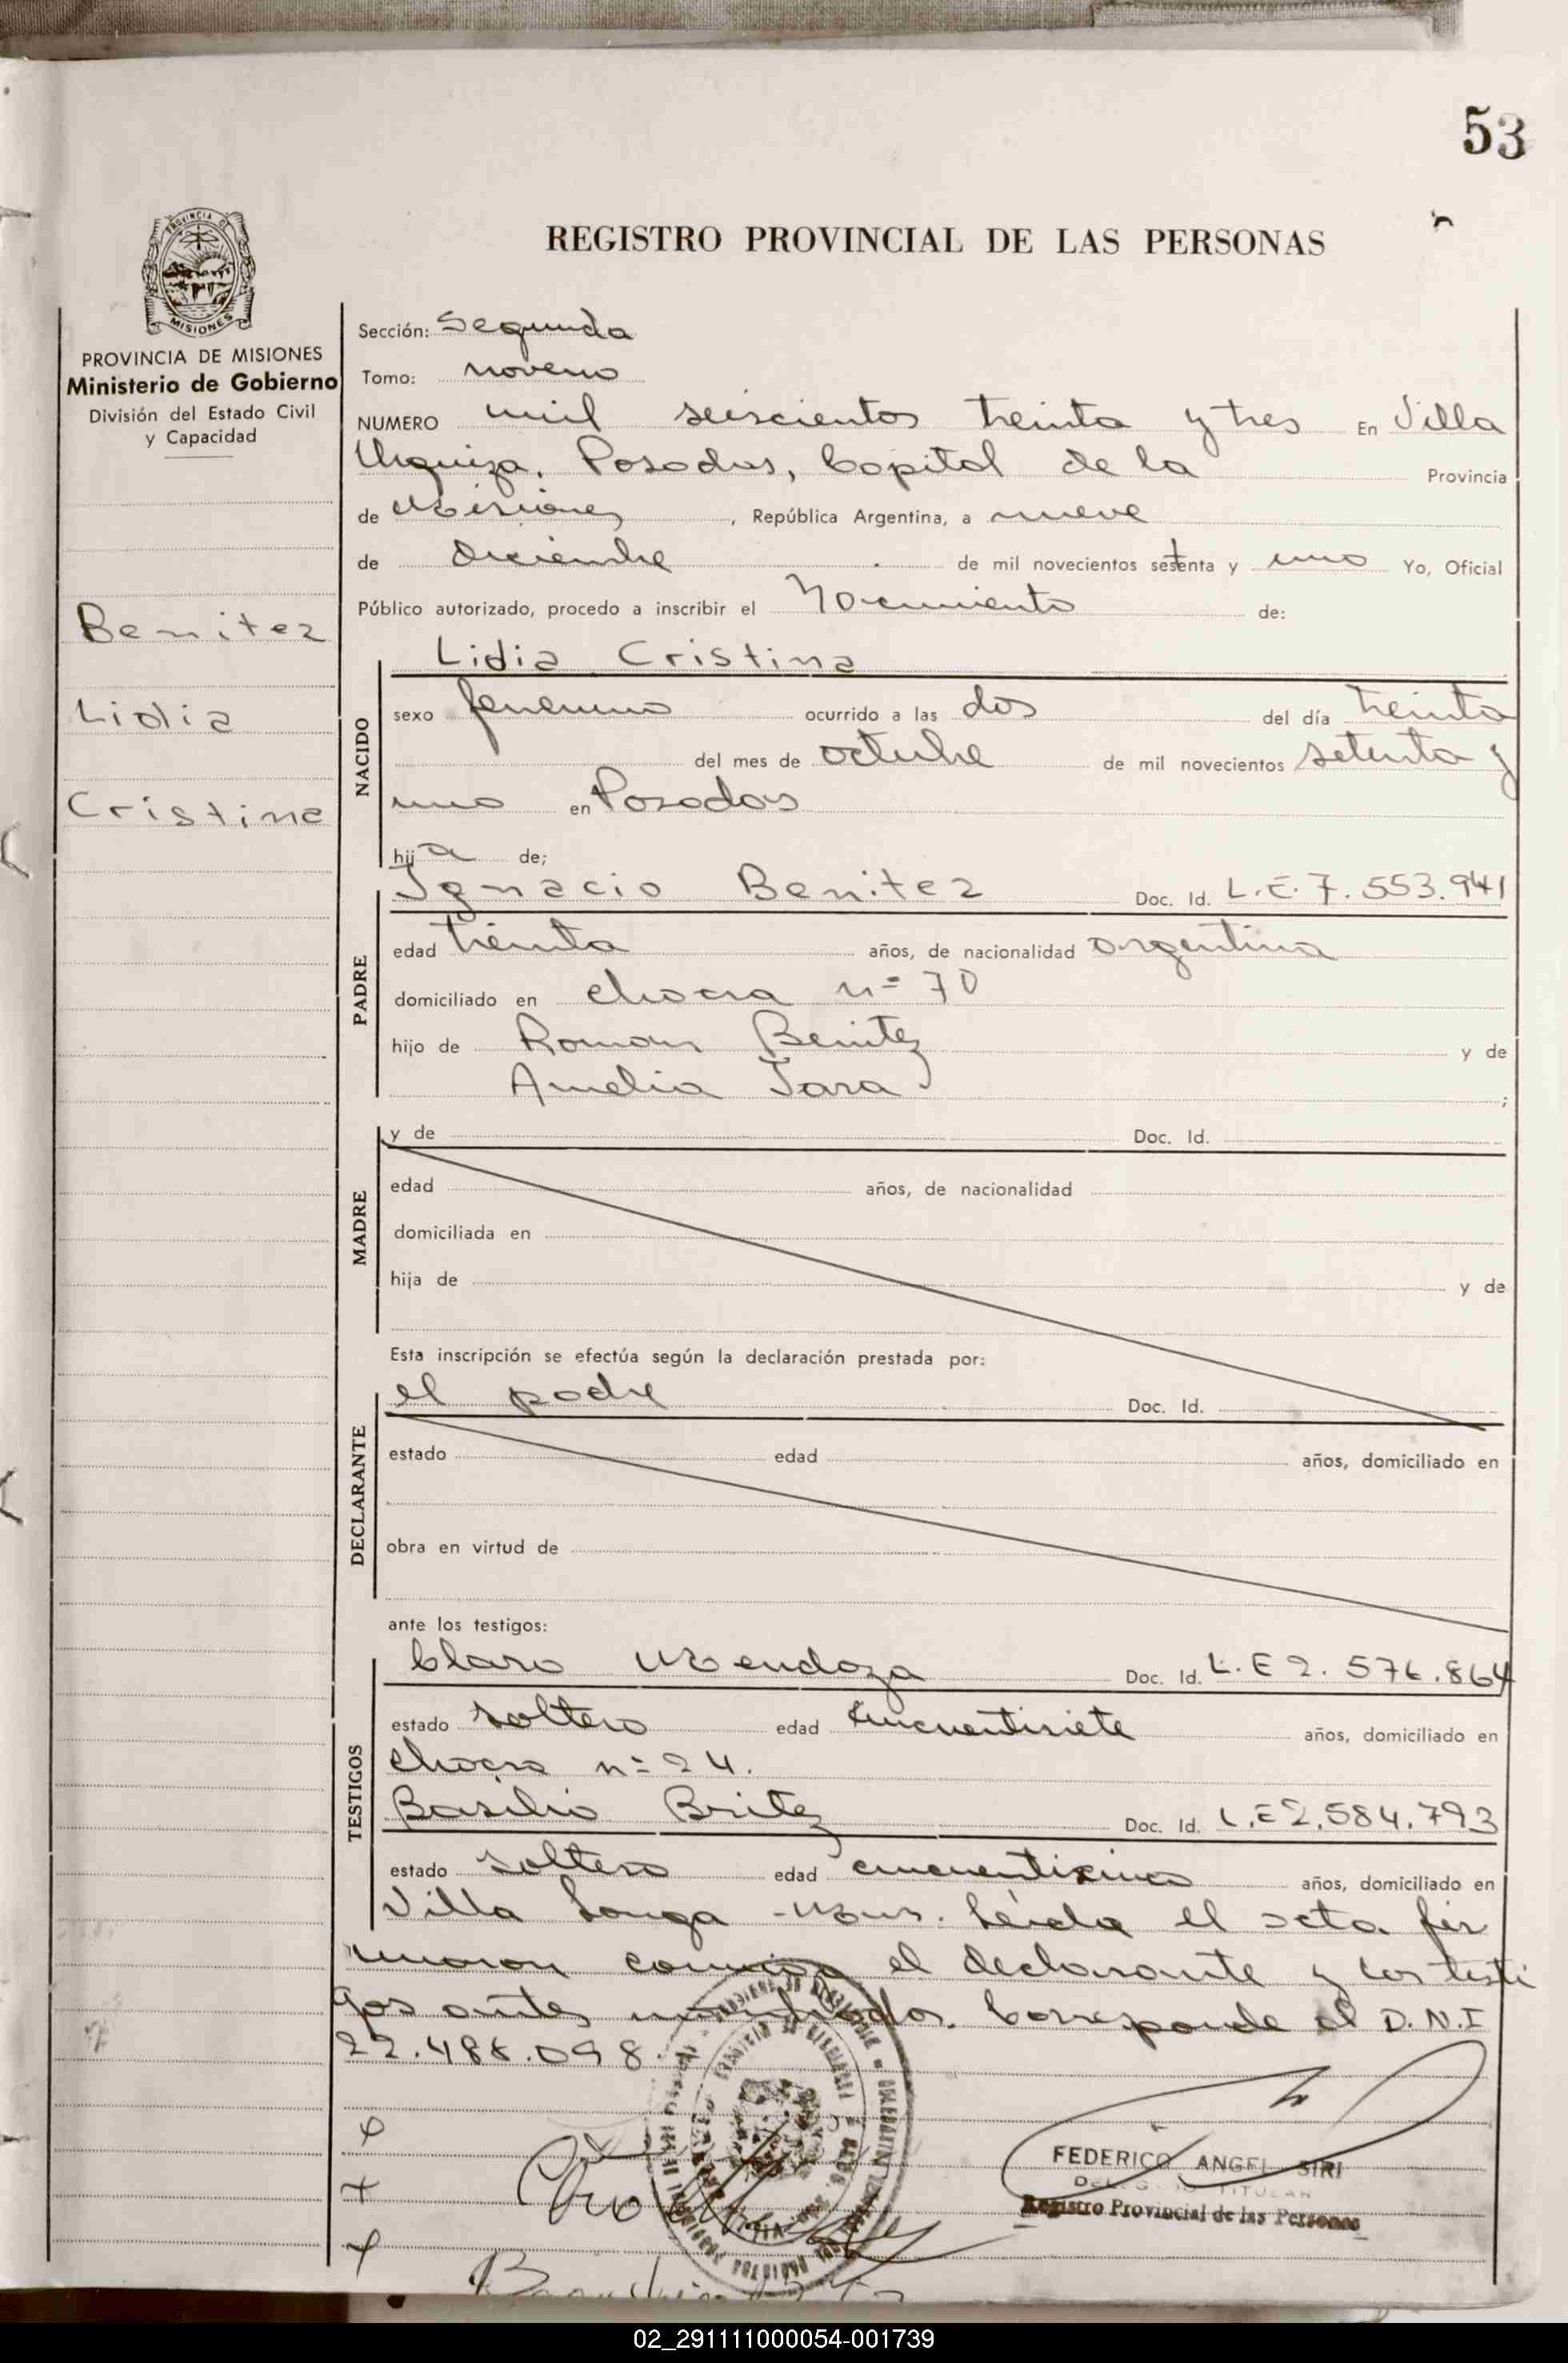 53
REGISTRO PROVINCIAL DE LAS PERSONAS
PROVINCIA DE MISIONES
Ministerio de Gobierno
División del Estado Civil
y Capacidad
Benitez
Lidia
Cristina
Sección: Segunda
Tomo: noveno
NUMERO mil seiscientos treinta y tres En Villa
Urquiza, Posadas, Capital de la Provincia
de Misiones, República Argentina, a nueve
de diciembre de mil novecientos setenta y uno Yo, Oficial
Público autorizado, procedo a inscribir el Nacimiento de:
NACIDO
Lidia Cristina
sexo femenino ocurrido a las dos del día treinta
del mes de octubre de mil novecientos setenta y
uno en Posadas
hija de;
PADRE
Ignacio Benitez Doc. Id. L.E. 7.553.941
edad treinta años, de nacionalidad argentina
domiciliado en chacra n= 70
hijo de Roman Benitez y de
Amelia Jara ;
MADRE
y de Doc. Id.
edad años, de nacionalidad
domiciliada en
hija de y de
Esta inscripción se efectúa según la declaración prestada por:
DECLARANTE
el padre Doc. Id.
estado edad años, domiciliado en
obra en virtud de
ante los testigos:
TESTIGOS
Claro Mendoza Doc. Id. L.E 2.576.864
estado soltero edad cincuentisiete años, domiciliado en
chacra n= 24.
Basilio Britez Doc. Id. L.E 2.584.793
estado soltero edad años, domiciliado en
Villa Longa - Leida el acta fir
maron conmigo el declarante y los testi
gos antes nombrados. Corresponde al D.N.I
22.488.098
FEDERICO ANGEL SIRI
DELEGADO TITULAR
Registro Provincial de las Personas
02_291111000054-001739